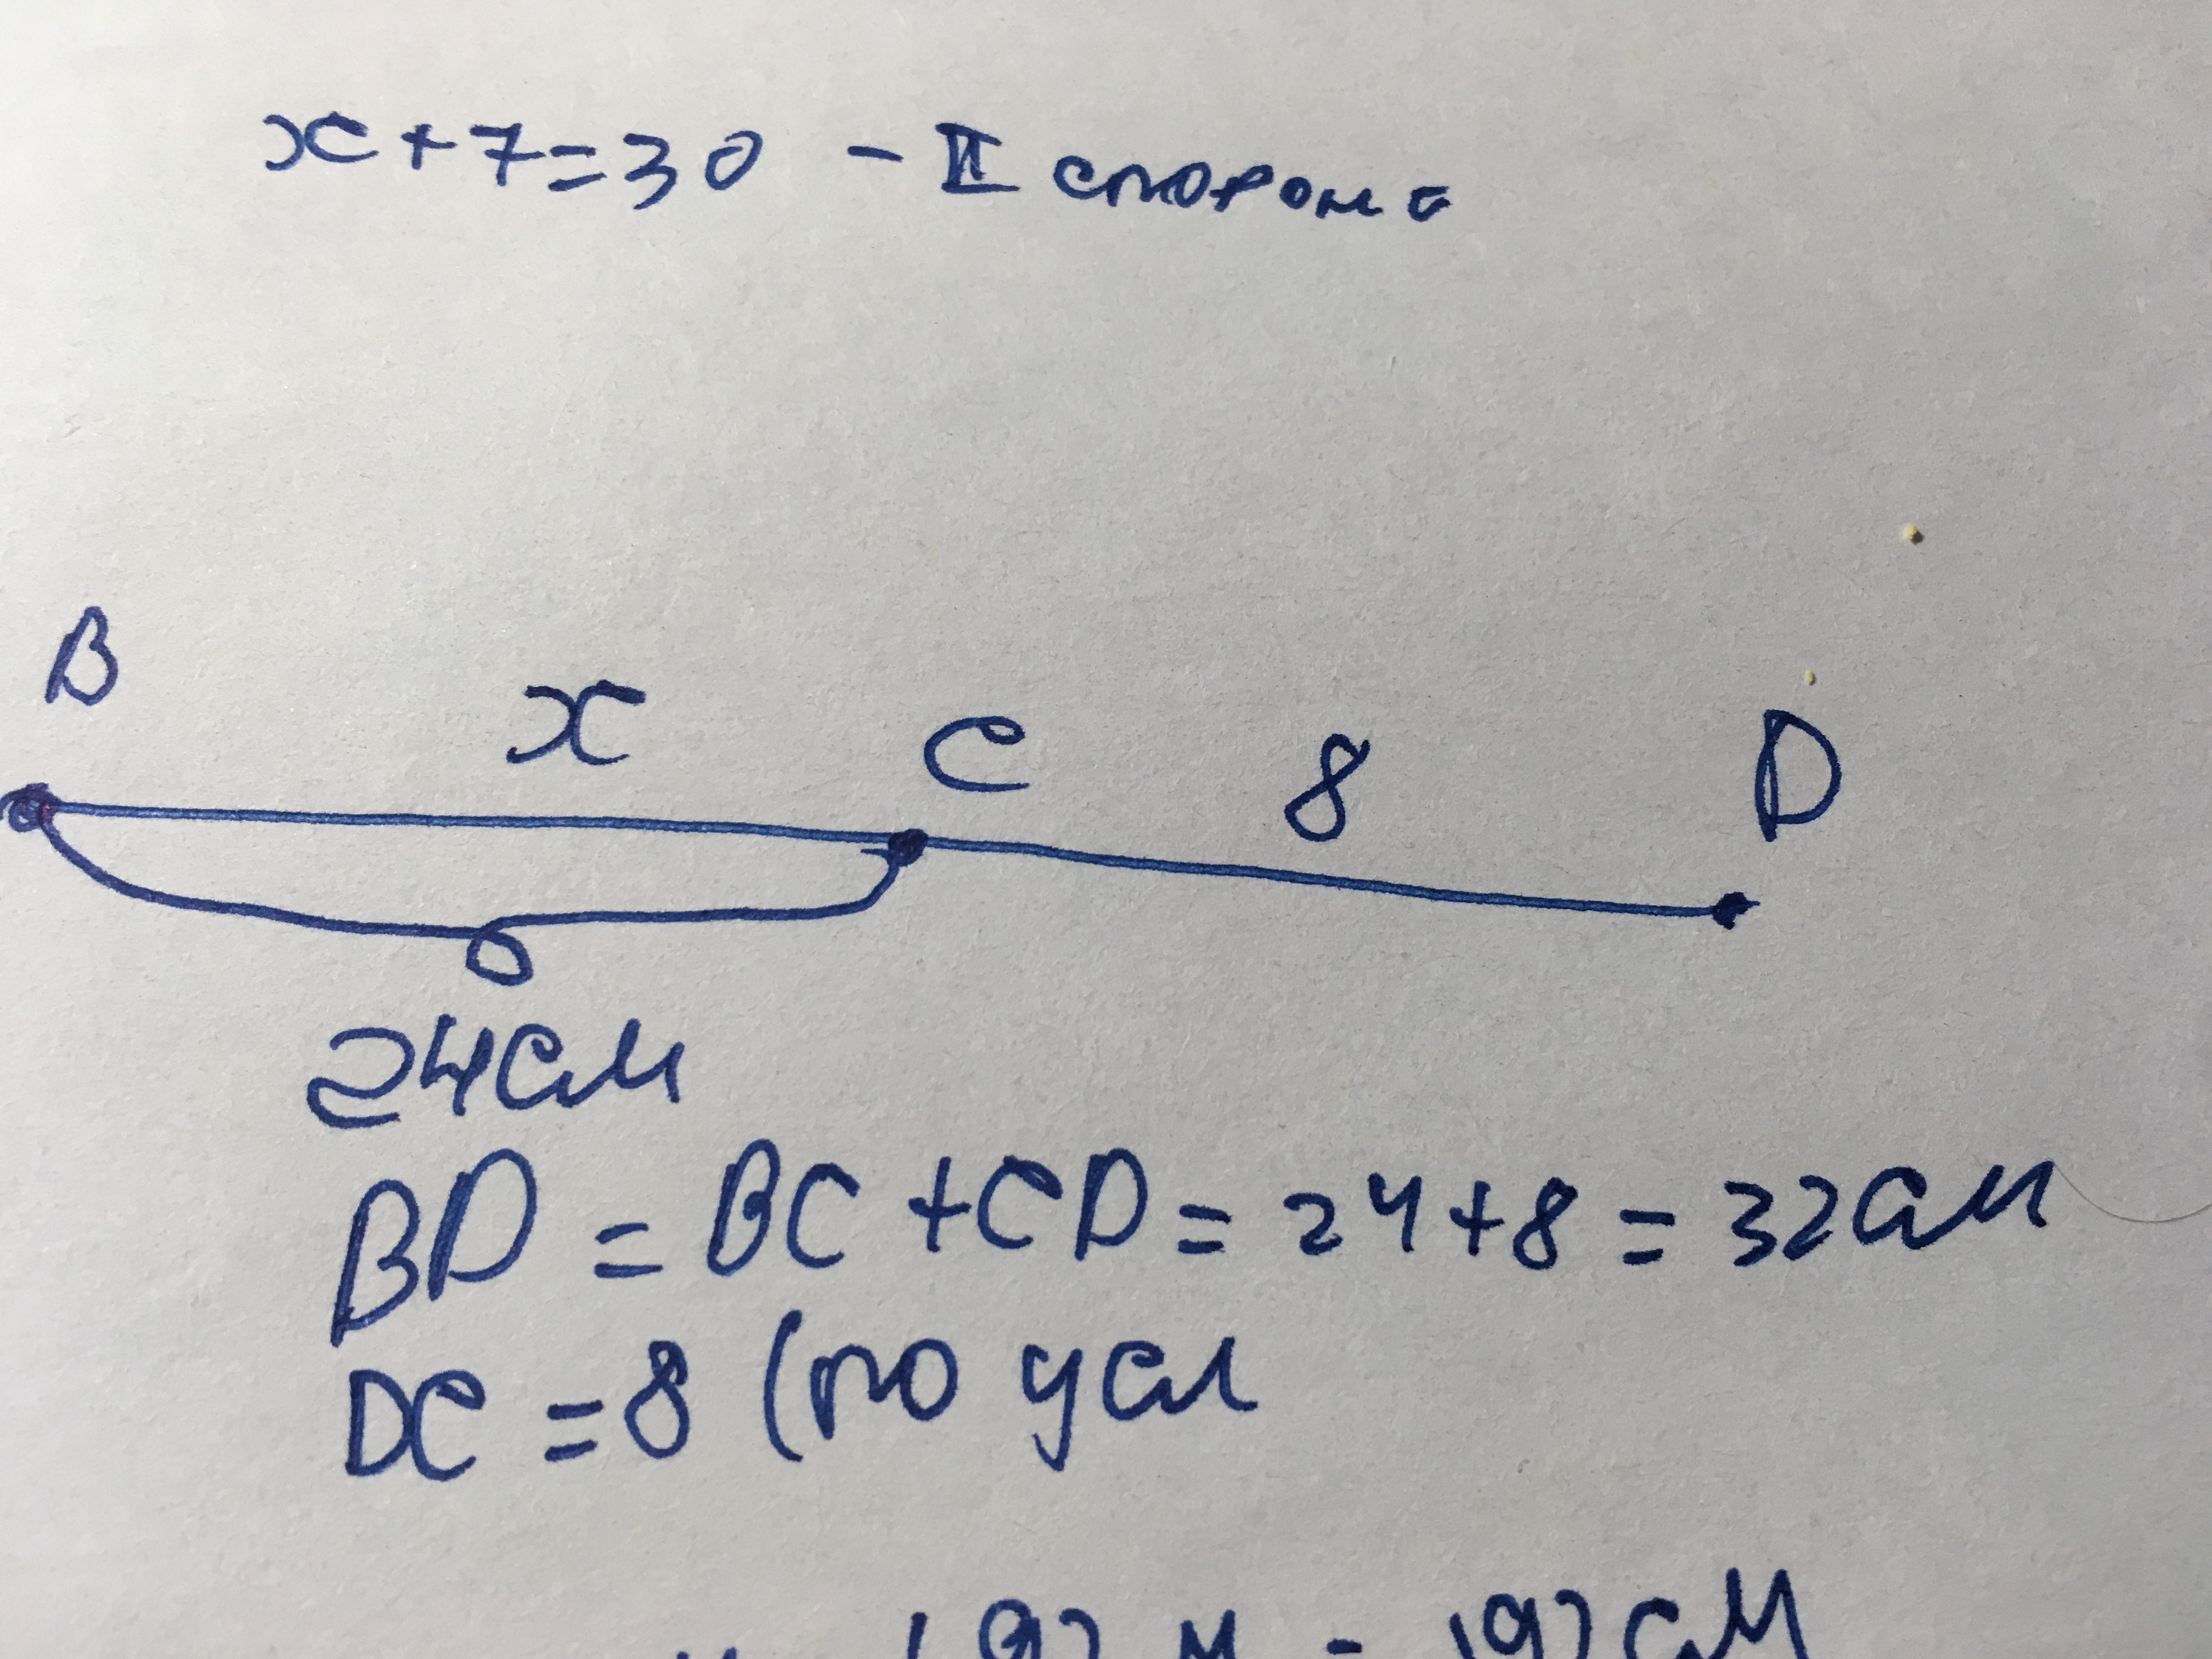 x+7=30 - II сторона
B
x
C
8
D
24см
BD = BC +CD = 24+8 = 32см
DC =8 (по усл